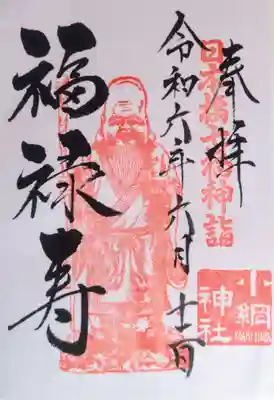 奉拝
日本橋七福神詣
令和六年六月十二日
福禄寿
小網神社
KOAMI JINJA